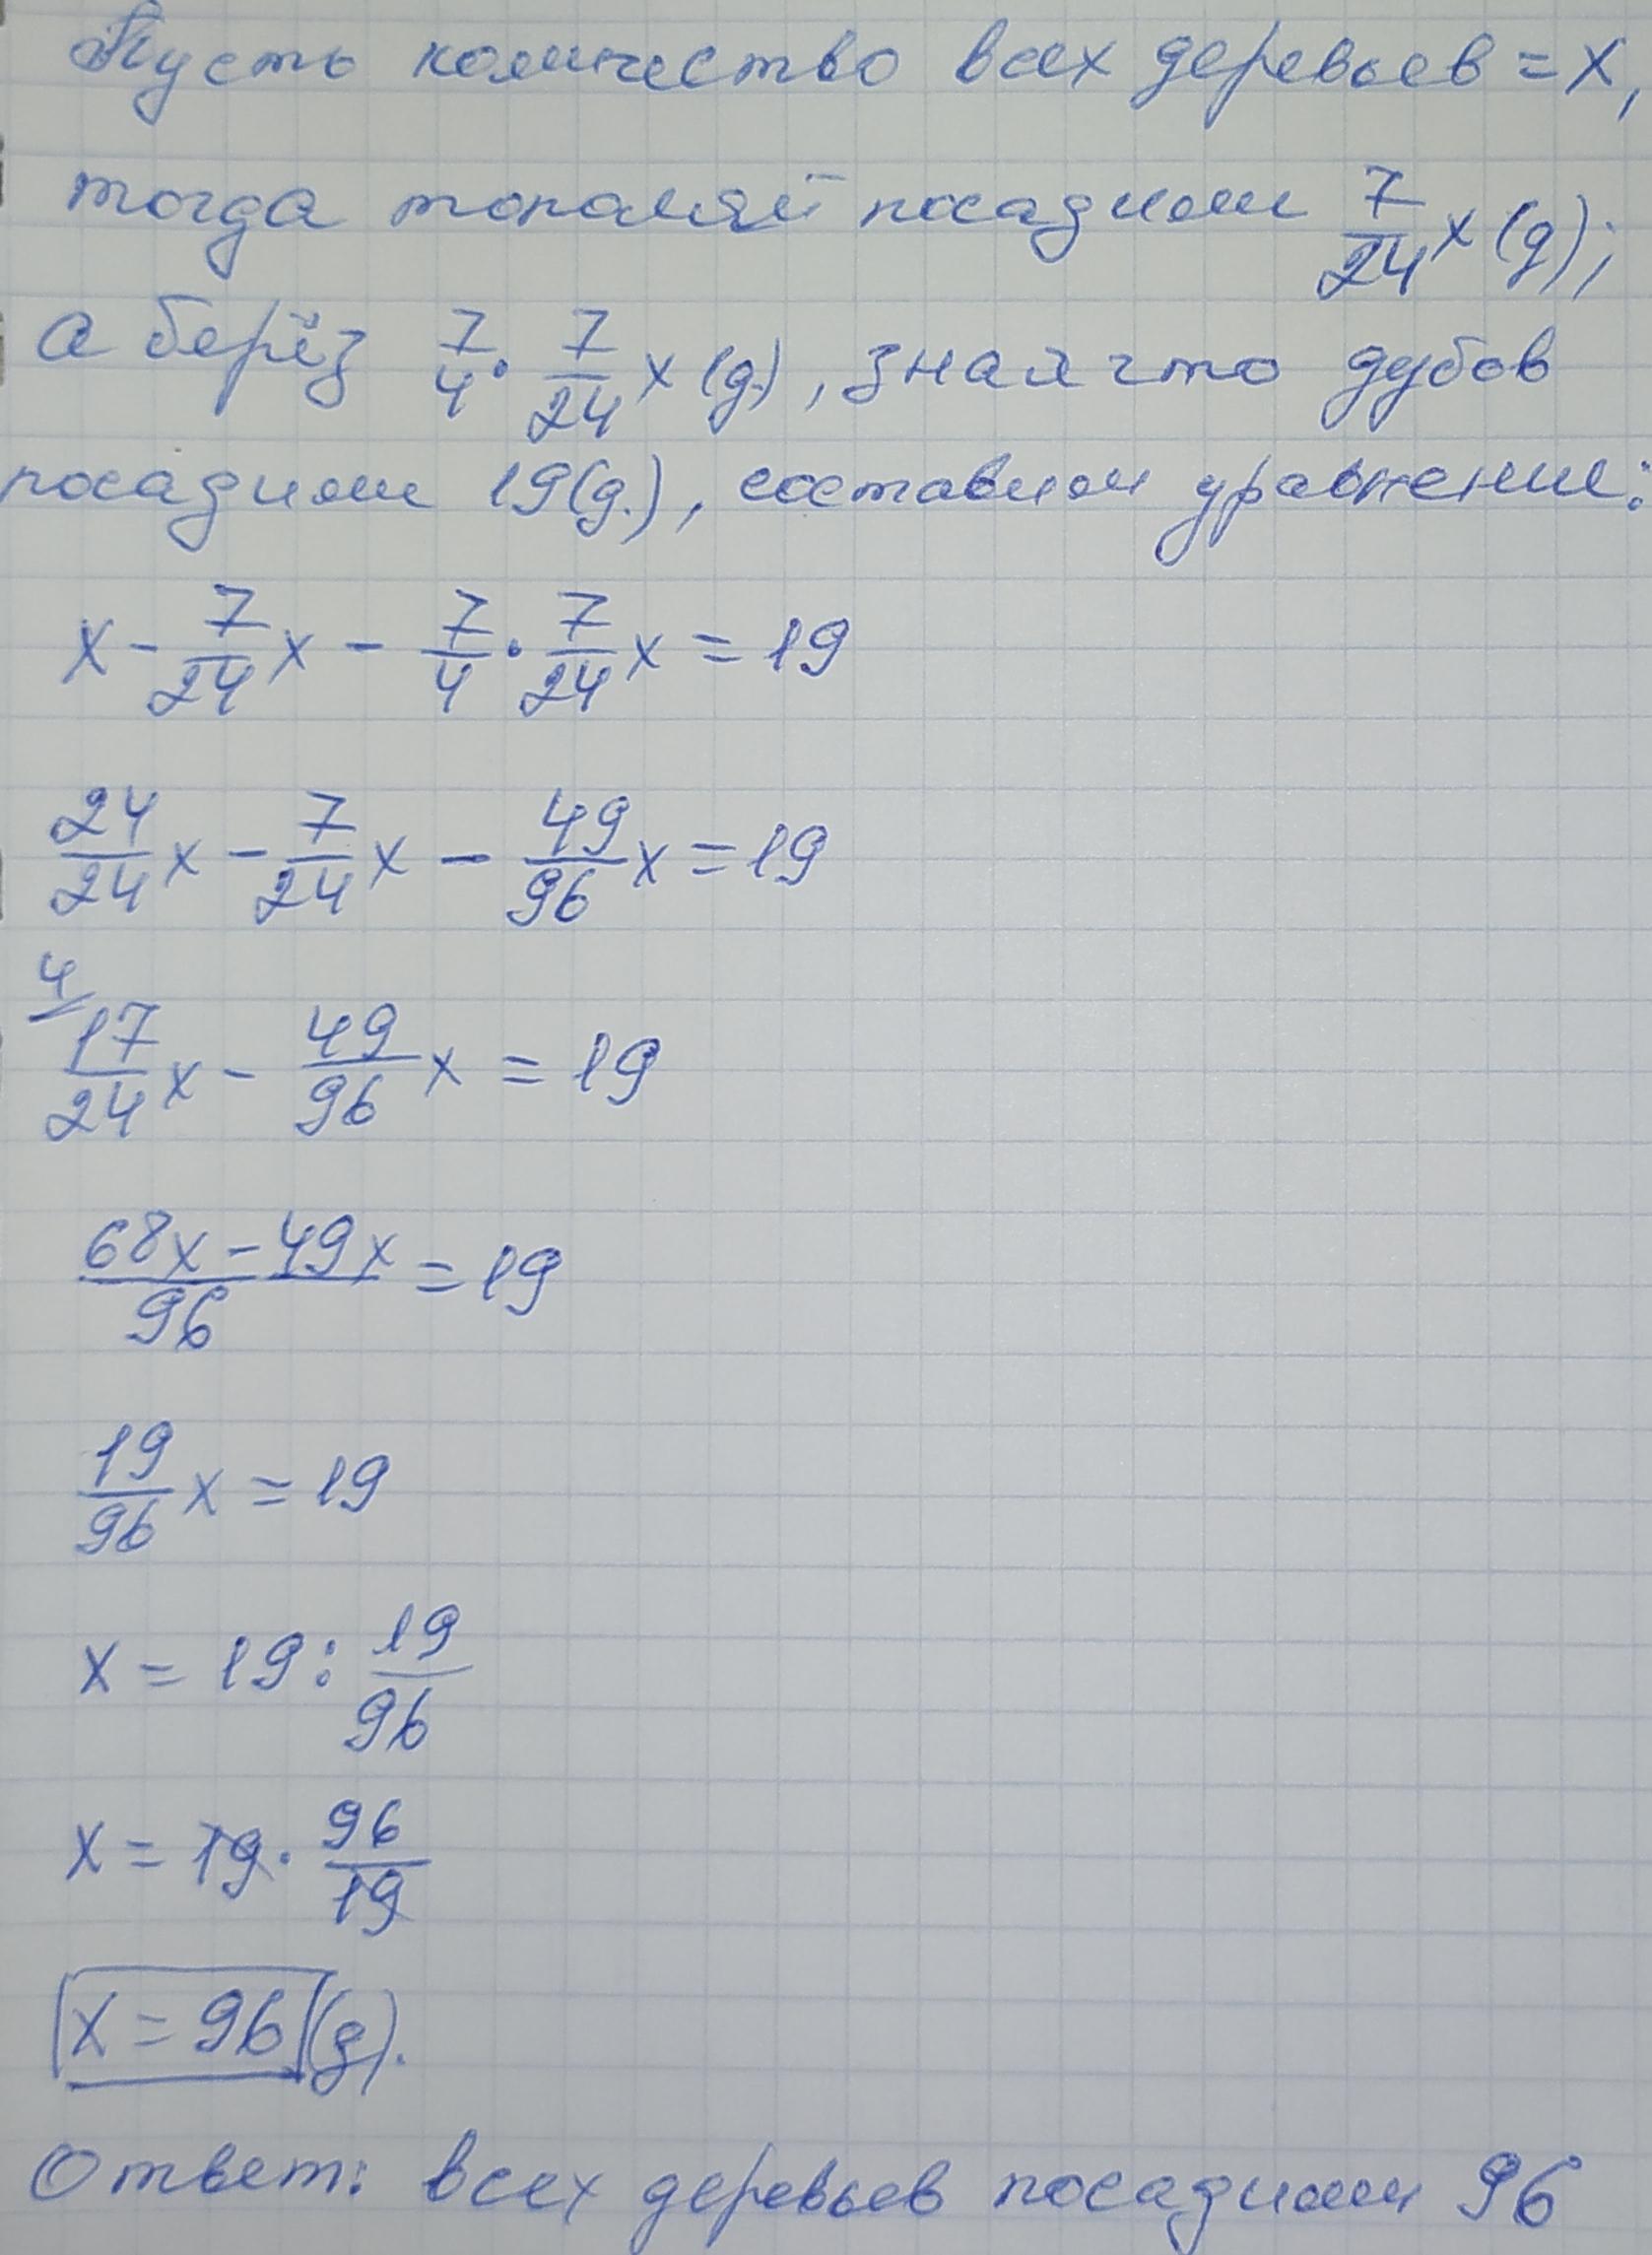 Пусть количество всех деревьев = x,
тогда тополей посадили 7/24 x (д);
а берёз 7/4 · 7/24 x (д.), зная что дубов
посадили 19(д.), составим уравнение:
x - 7/24 x - 7/4 · 7/24 x = 19
24/24 x - 7/24 x - 49/96 x = 19
4/ 17/24 x - 49/96 x = 19
68x - 49x / 96 = 19
19/96 x = 19
x = 19 : 19/96
x = 19 · 96/19
x = 96 (д).
Ответ: всех деревьев посадили 96